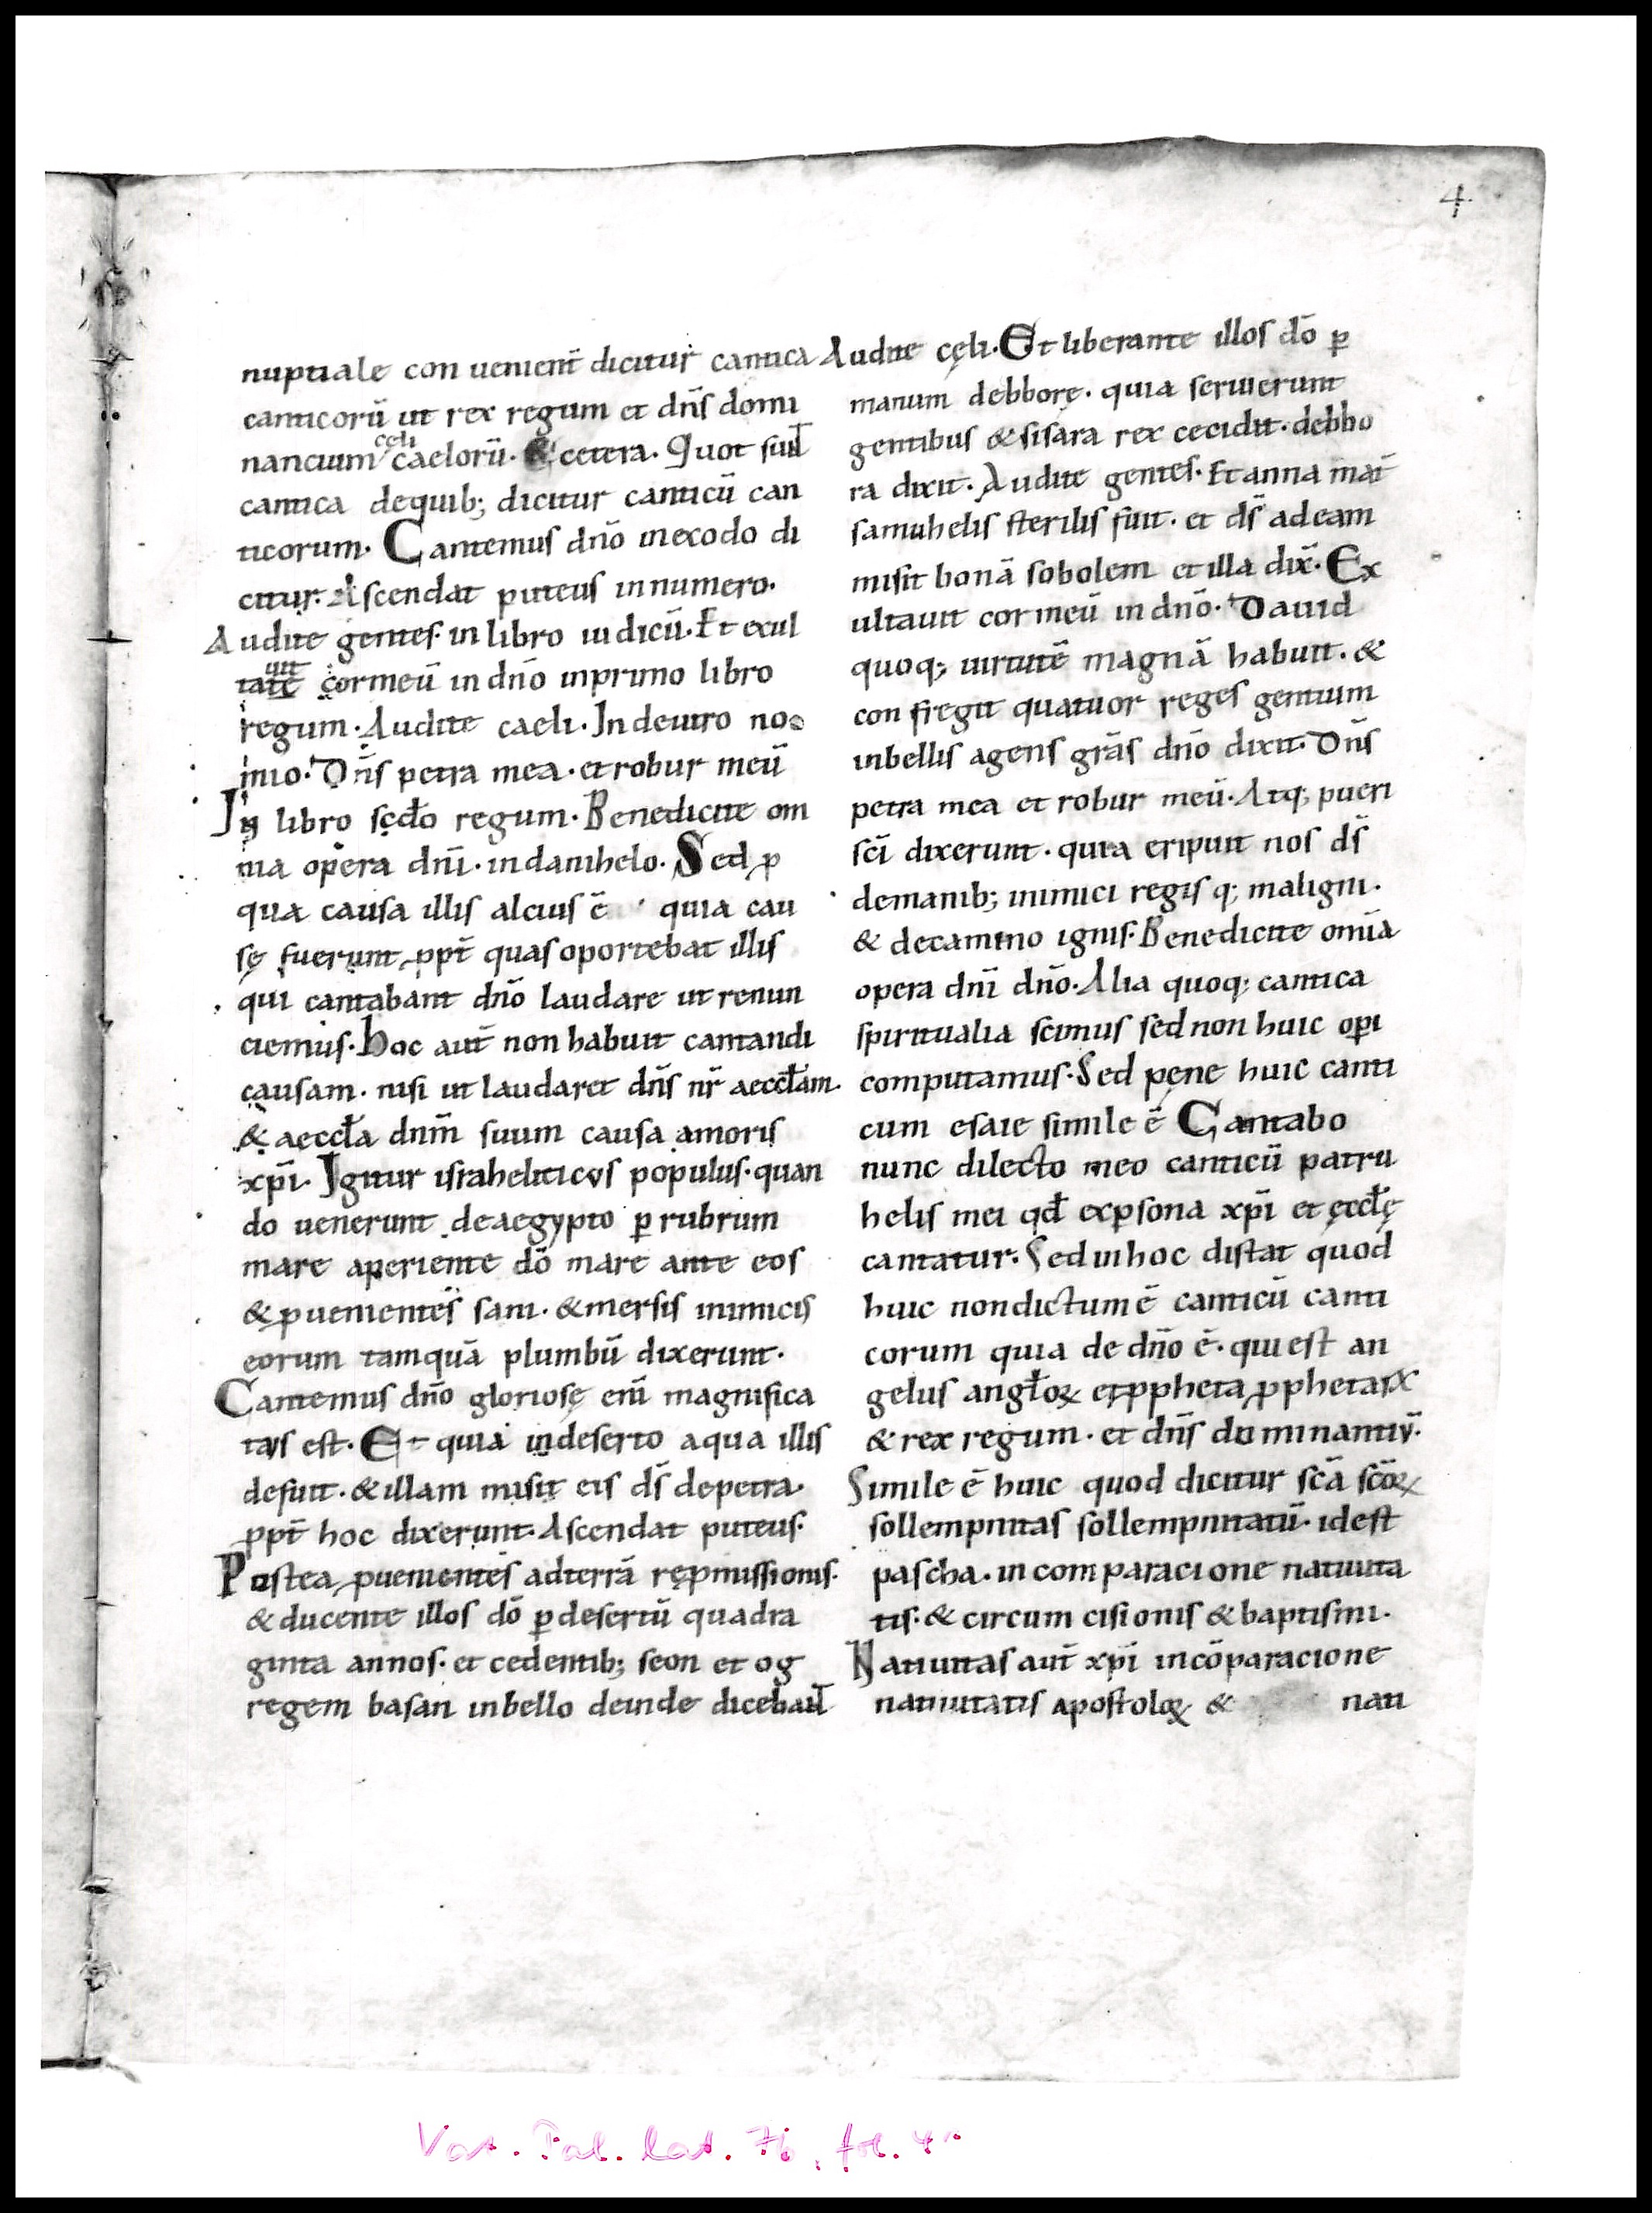 4
nuptiale con uenienť dicitur cantica
canticorū ut rex regum et dn̄s domi
nancium celi caelorū. & cetera. Quot suɴt
cantica dequib; dicitur canticū can
ticorum. Cantemus dn̄o inexodo di
citur. Ascendat puteus innumero.
Audite gentes. in libro iudicū. Et exul
tate uit cormeū in dn̄o inprimo libro
regum. Audite caeli. In deutro no
mio. Dn̄s petra mea. et robur meū
In libro sc̄do regum. Benedicite om
nia opera dn̄i. indanihelo. Sed p
qua causa illis alcius ē quia cau
sę fuerunt ꝓpt̄ quas oportebat illis
qui cantabant dn̄o laudare ut renun
ciemus. hoc aut̄ non habuit cantandi
causam. nisi ut laudaret dn̄s nr̄ aeccłam.
& aeccła dnm̄ suum causa amoris
xp̄i. Igitur israheliticus populus. quan
do uenerunt deaegypto ꝑ rubrum
mare aperiente dō mare ante eos
& ꝑuenientes sani. & mersis inimicis
eorum tamquā plumbū dixerunt.
Cantemus dn̄o gloriosę enī magnifica
tus est. Et quia indeserto aqua illis
defuit. & illam misit eis ds̄ depetra.
ꝓpt̄ hoc dixerunt. Ascendat puteus.
Postea ꝑuenientes adterrā reꝓmissionis.
& ducente illos dō ꝑ desertū quadra
ginta annos. et cedentib; seon et og
regem basan inbello deinde dicebant
Audite cęli. Et liberante illos dō ꝑ
manum debborę. quia seruierunt
gentibus & sisara rex cecidit. debbo
ra dixit. Audite gentes. Et anna mat̄
samuhelis sterilis fuit. et ds̄ adeam
misit bonā sobolem et illa dix̄. Ex
ultauit cor meū in dn̄o. Dauid
quoq; uirtutē magnā habuit. &
con fregit quatuor reges gentium
inbellis agens grās dn̄o dixit. Dn̄s
petra mea et robur meū. Atq; pueri
sc̄i dixerunt. quia eripuit nos ds̄
demanib; inimici regis q; maligni.
& decamino ignis. Benedicite omīa
opera dn̄i dn̄o. Alia quoq; cantica
spiritualia scimus sed non huic oꝑi
computamus. Sed pęne huic canti
cum esaie simile ē Cantabo
nunc dilecto meo canticū patru
helis mei qd̄ exꝑsona xp̄i et ęccłę
cantatur. Sed inhoc distat quod
huic nondictum ē canticū canti
corum quia de dn̄o ē. qui est an
gelus angłoꝝ et ꝓpheta ꝓphetarꝝ
& rex regum. et dn̄s dominantiū.
Simile ē huic quod dicitur sc̄a sc̄oꝝ
sollempnitas sollempnitatū. idest
pascha. in comparacione natiuita
tis. & circum cisionis & baptismi.
Natiuitas aut̄ xp̄i incōparacione
natiuitatis apostoloꝝ & nati
Vat. Pal. lat. 76, fol. 4r